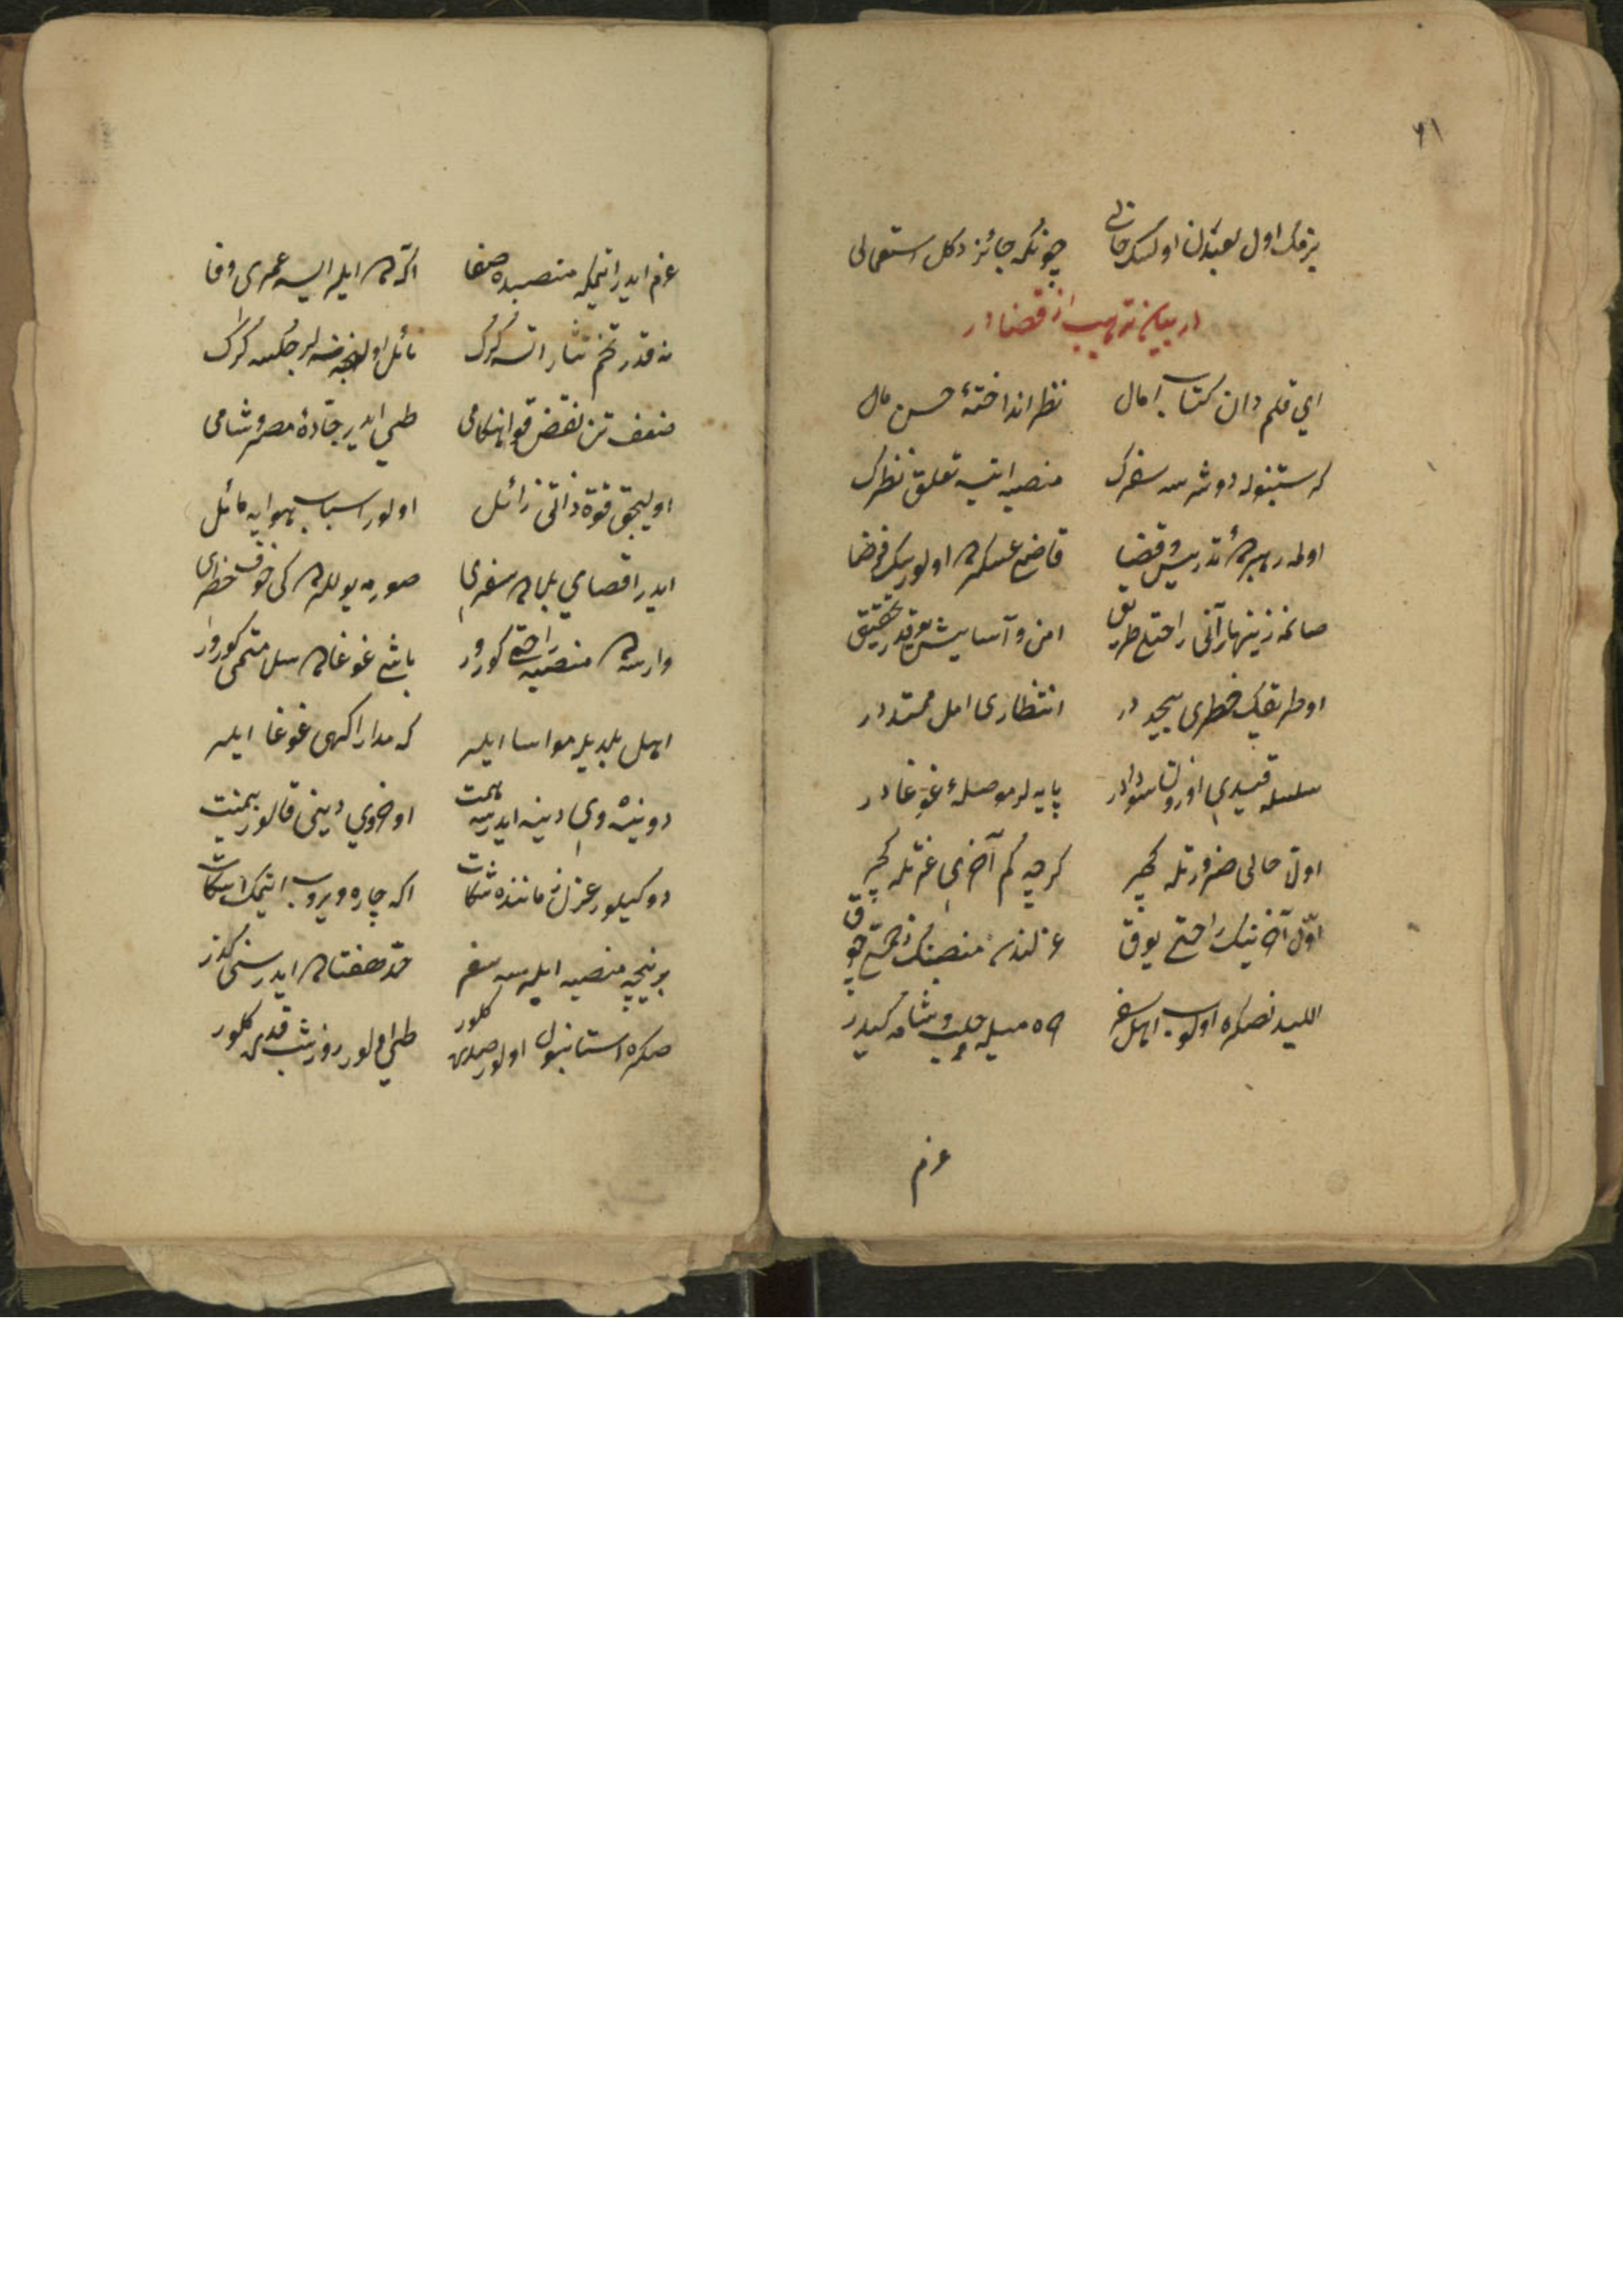 ٦١
بزمك اول لعبتدن اولسك خالی چونكه جائز دكل استعمالی
در بیان ترهیب از قضا در
ای قلم دان كتاب آمال نظر انداختهٔ حسن مال
كه ستنبوله دوشرسه سفرك منصبه ایتسه تعلق نظرك
اوله رهبره تدریس و قضا قاضی عسكره اولورسك فرضا
صانمه زینهار آنی راحتلی طریق امن و آسایشی یوقدر تحقیق
او طریقك خطری بیحددر انتظاری امل ممتددر
سلسله قیدی اوزون سوادر پایه لر موصلهٔ غوغادر
اول حالی ضرورتله كچر كرچه كم آخری عزتله كچر
اول آخرینك راحتی یوق عزلندن منصبنك زحمتی چوق
اللیدنصكره اولوب اهل سفر كه میله حلب و شامه كیدر
عزم
عزم ایدر ایتمكه منصبده صفا اكر ایلر ایسه عمری وفا
نه قدر تخم نثار اتسه كرك نائل اولنجه نه لر چكسه كرك
ضعف تن نقض قوا هنكامی طی ایدر جادهٔ مصر و شامی
اولیجق قوة ذاتی زائل اولور اسباب هوایه مائل
ایدر اقصای بلاده سفری صوریه یوللرده كی خوف خطری
وارسه منصبه راحتمی كورر باشی غوغاده سلامتمی كورر
اهل بلدیله مواسا ایلر كه مدارا كهی غوغا ایلر
دونیه وی دینه ایدرسه همت اوخروی دینی قالور بیمنت
دوكیلور عزلنده ماننده شكات اكه چاره ویروب ایتمك اسكات
بر نیجه منصبه ایلرسه سفر حد هفتاده ایدر سنی كذر
صكره استانبول اولور صدری كلور طی اولور روز شب قدری كلور